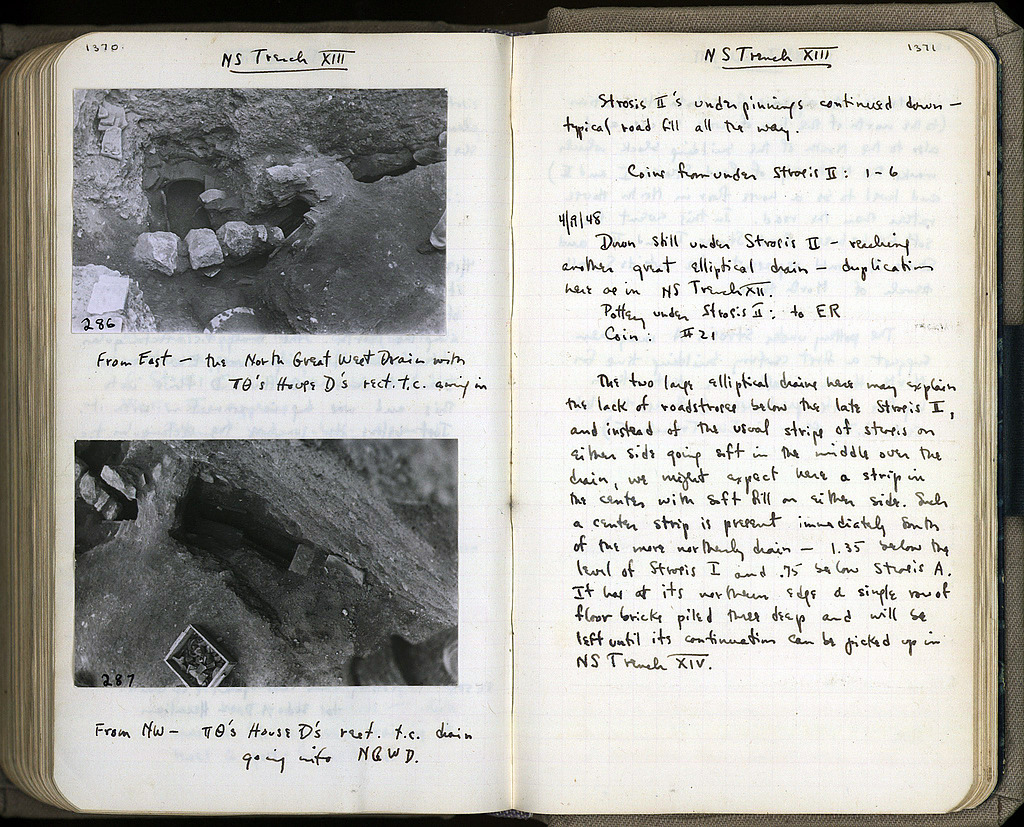 1370
NS Trench XIII
286
From East – the North Great West Drain with
ΠΘ's House D's rect. t.c. going in
287
From NW – ΠΘ's House D's rect. t.c. drain
going into NGWD.
1371
NS Trench XIII
Strosis II's underpinnings continued down –
typical road fill all the way.
Coins from under Strosis II: 1-6
4/9/48
Down still under Strosis II – reaching
another great elliptical drain – duplication
here as in NS Trench XII.
Pottery under Strosis II: to ER
Coin: #21
The two large elliptical drains here may explain
the lack of roadstroses below the late Strosis II,
and instead of the usual strips of strosis on
either side going soft in the middle over the
drain, we might expect here a strip in
the center with soft fill on either side. Such
a center strip is present immediately South
of the more northerly drain – 1.35 below the
level of Strosis I and .75 below Strosis A.
It has at its northern edge a single row of
floor bricks piled three deep and will be
left until its continuation can be picked up in
NS Trench XIV.